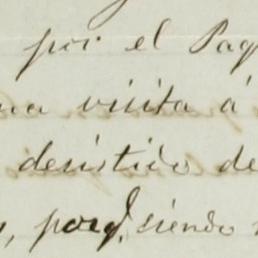 por el Paq
na visita á
desistido de
, porq. siendo